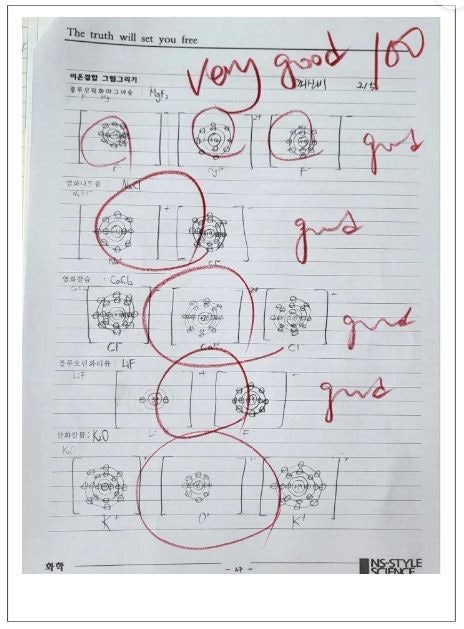 The truth will set you free
very good 100
이온결합 그림그리기
플루오린화마그네슘 : MgF₂
F Mg
F⁻ Mg²⁺ F⁻
good
염화나트륨 : NaCl
Na⁺ Cl⁻
good
염화칼슘 : CaCl₂
Cl⁻ Ca²⁺ Cl⁻
good
플루오린화리튬 : LiF
LiF
Li F
good
산화칼륨 : K₂O
K⁺ K⁺
화학
- 27 -
NS-STYLE
SCIENCE